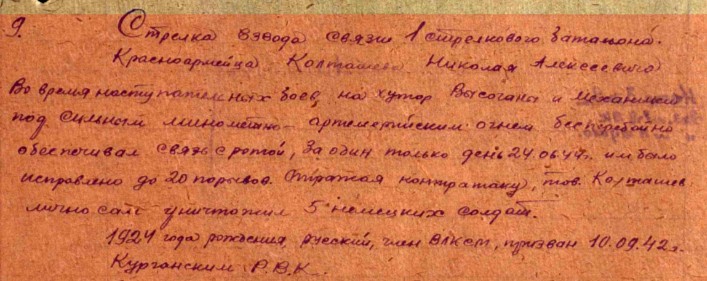 9. Стрелка взвода связи 1 стрелкового батальона.
Красноармейца Колташева Николая Алексеевича
Во время наступательных боев, на хутор Высоганы и
под сильным минометно-артелерийским огнем бесперебойно
обеспечивал связь с ротой, за один только день 24.06.44г. им было
исправлено до 20 порывов. Отражая контратаку, тов. Колташев
лично сам уничтожил 5 немецких солдат.
1924 года рождения, русский, член ВЛКСМ, призван 10.09.42г.
Курганским Р.В.К.